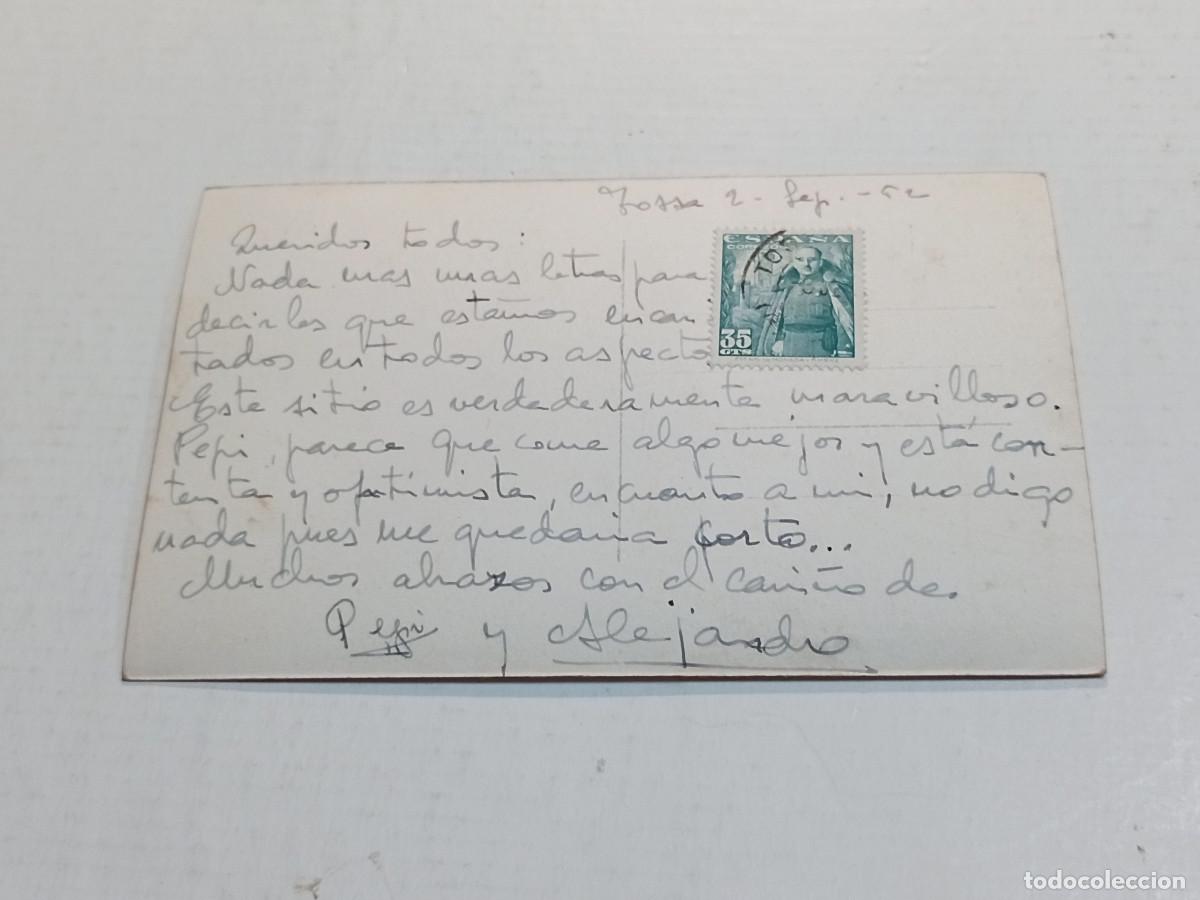 Tossa 2 - Sep. - 52
Queridos todos:
Nada mas unas letras para
decirles que estamos encan
tados en todos los aspecto
Este sitio es verdaderamente maravilloso.
Pepi, parece que come algo mejor y está con-
tenta y optimista, en cuanto a mi, no digo
nada pues me quedaria corto...
Muchos abrazos con el cariño de.
Pepi y Alejandro
ESPAÑA
CORREOS
TOS
35
CTS
todocoleccion